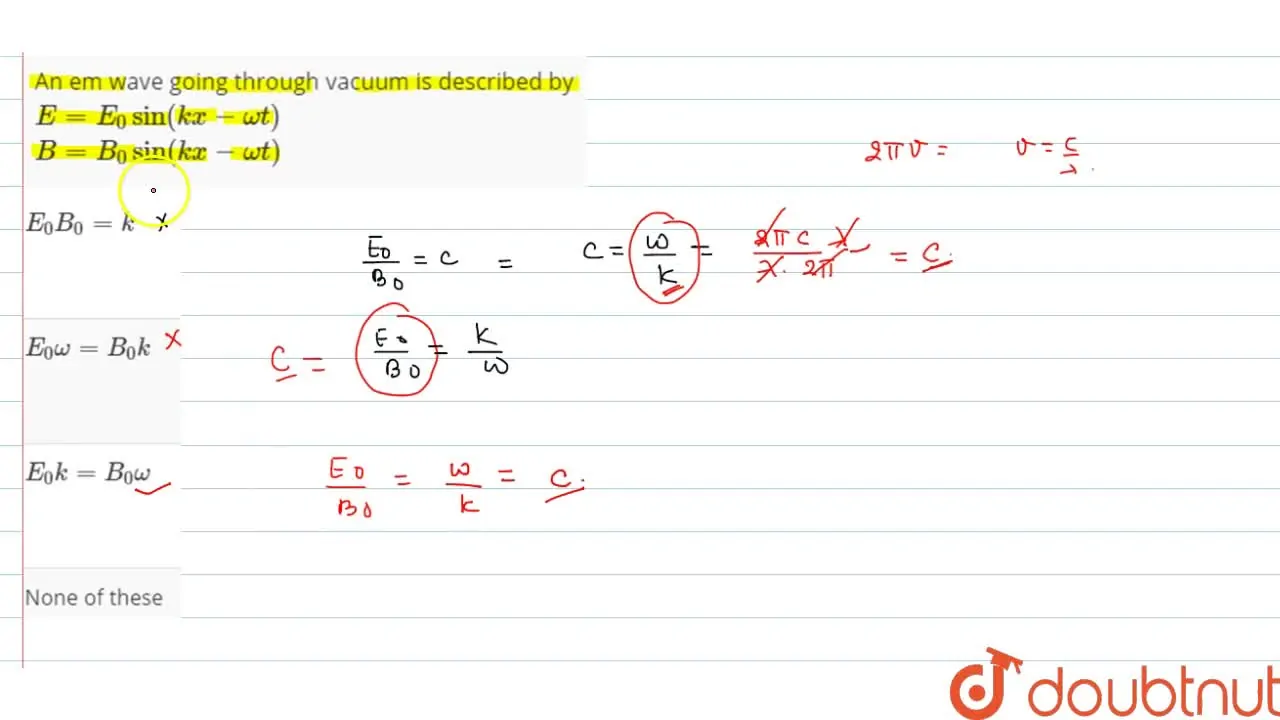 An em wave going through vacuum is described by
E = E₀ sin(kx − ωt)
B = B₀ sin(kx − ωt)
2πν =   ν = c/λ
E₀B₀ = k ×
E₀/B₀ = c =   c = ω/k = 2πc λ/λ. 2π = c.
E₀ω = B₀k ×
c = E₀/B₀ = k/ω
E₀k = B₀ω ✓
E₀/B₀ = ω/k = c.
None of these
doubtnut